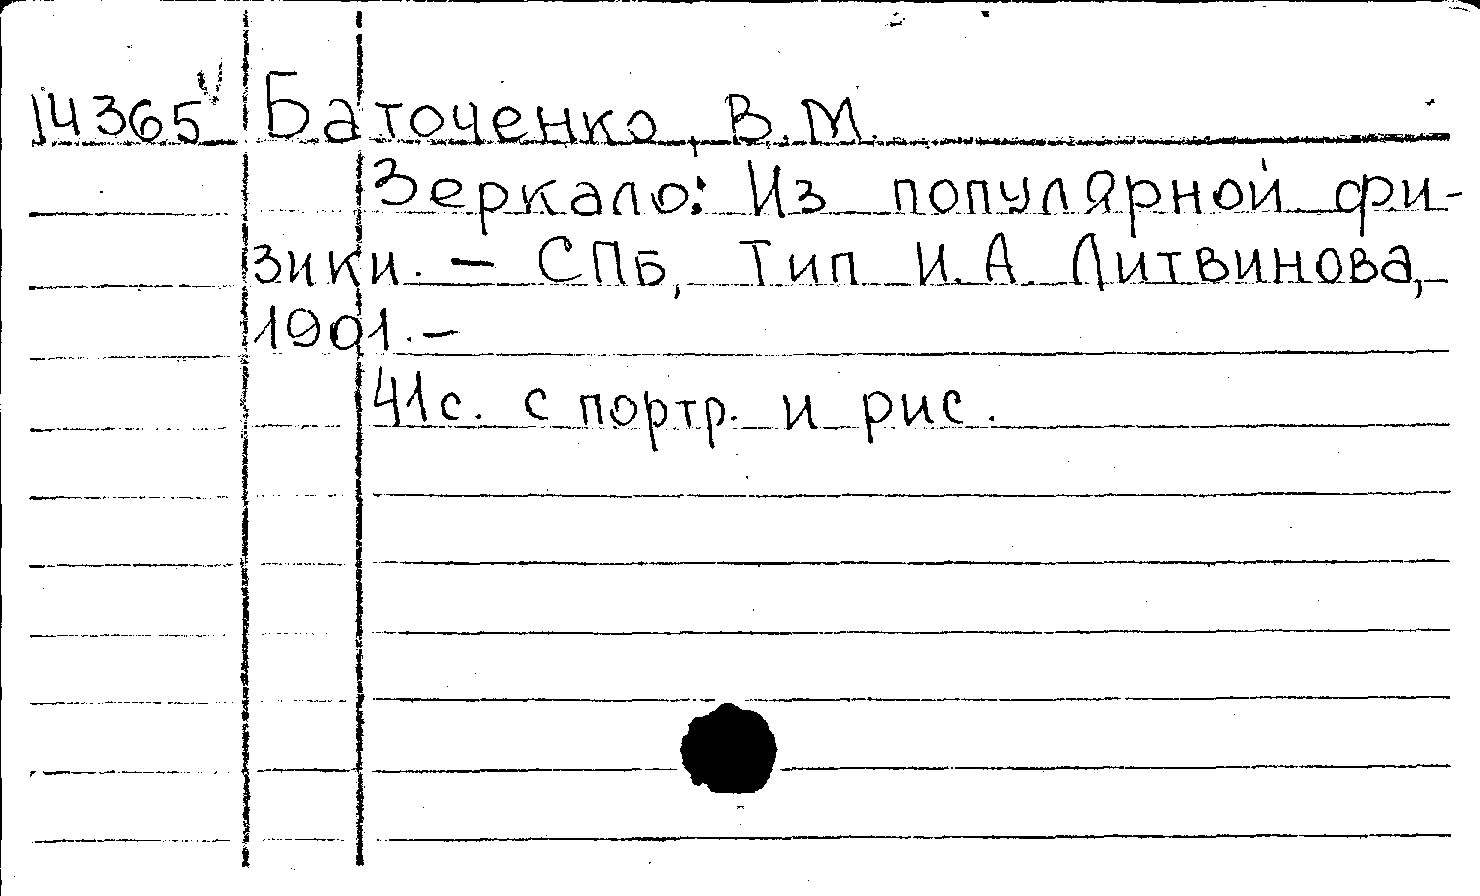 14365 Баточенко, В.М.
Зеркало: Из популярной фи-
зики. – СПБ, Тип И.А. Литвинова,
1901. –
41с. с портр. и рис.